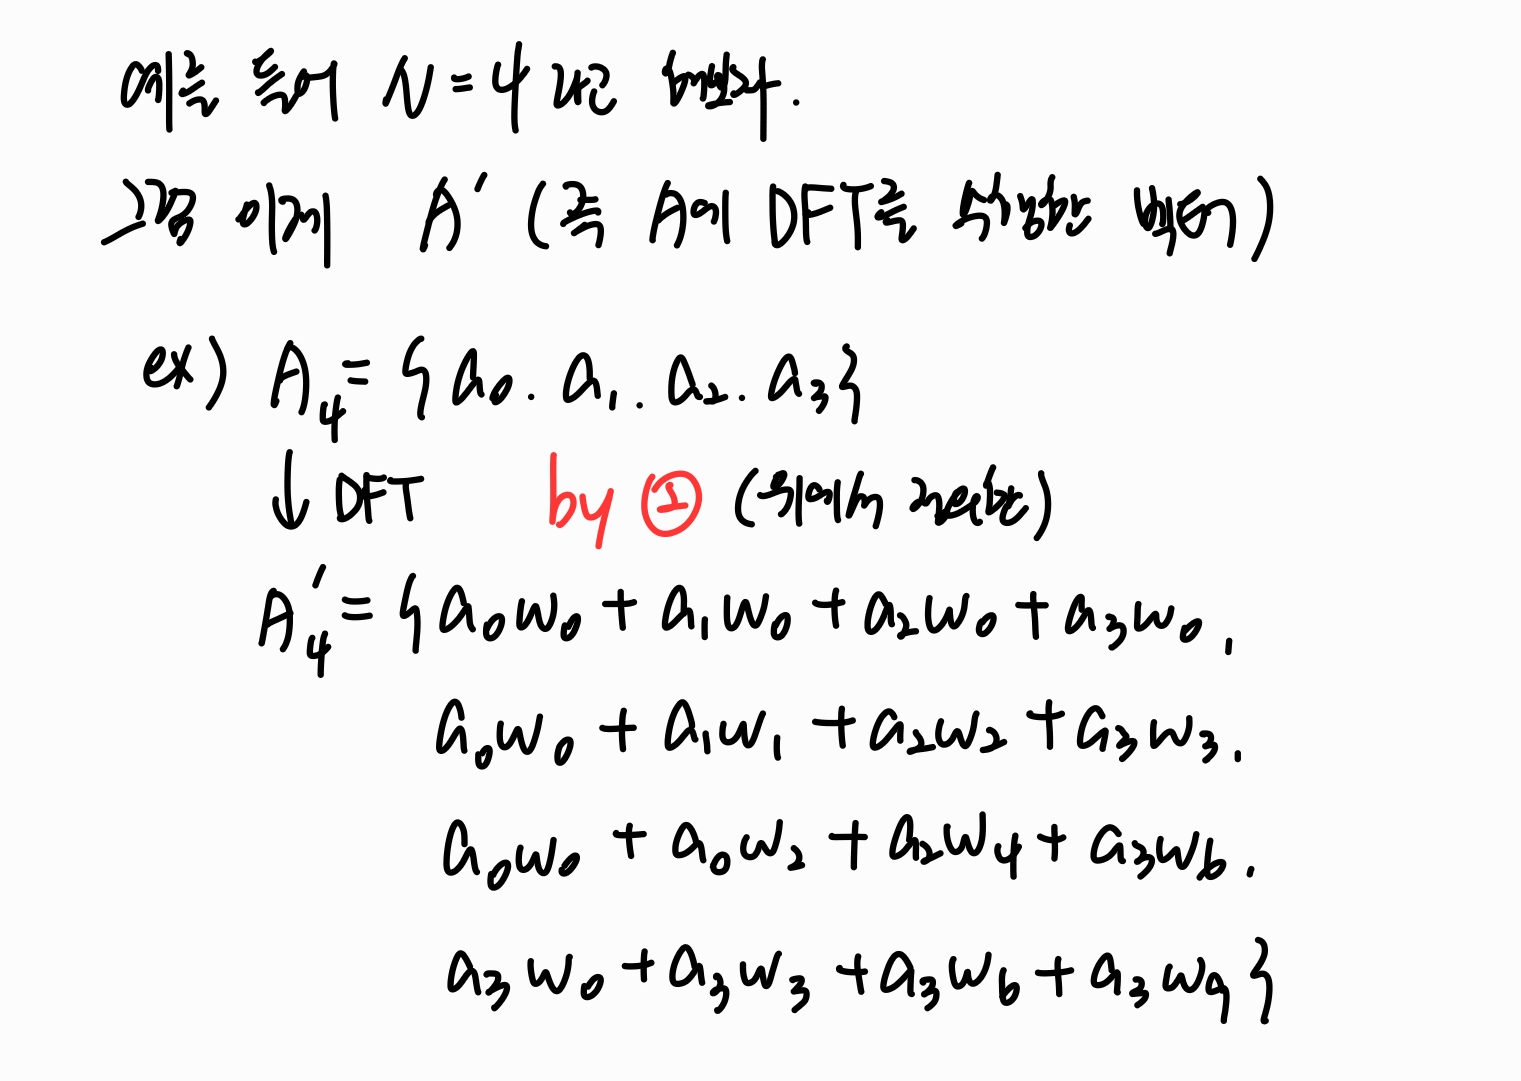 예를 들어 N = 4 라고 해보자.
그럼 이제 A' (즉 A에 DFT를 수행한 벡터)
ex) A₄ = {a₀. a₁. a₂. a₃}
↓ DFT by ① (위에서 정리한)
A'₄ = {a₀w₀ + a₁w₀ + a₂w₀ + a₃w₀,
a₀w₀ + a₁w₁ + a₂w₂ + a₃w₃,
a₀w₀ + a₀w₂ + a₂w₄ + a₃w₆.
a₃w₀ + a₃w₃ + a₃w₆ + a₃w₉}